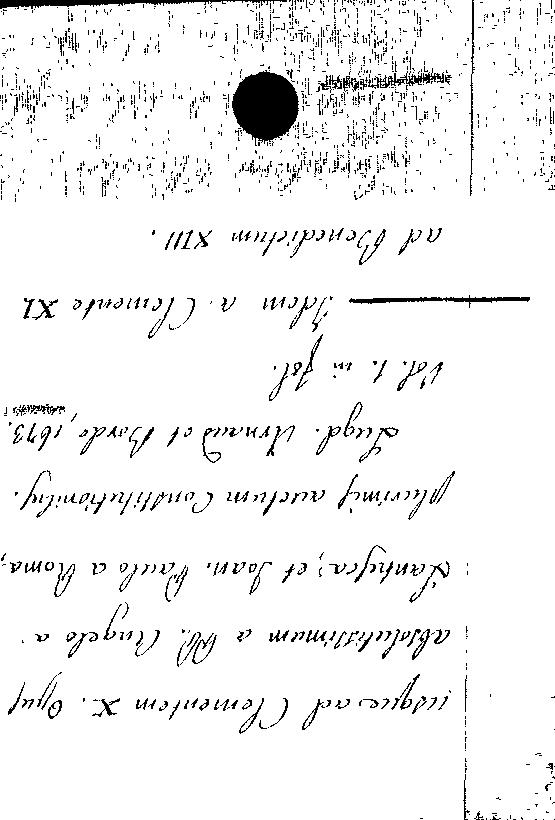 usque ad Clementem X. Opus
absolutissimum a P. Angelo a
Lantusca, et Joan. Paulo a Roma,
plurimis auctum Constitutionibus.
Lugd. Arnaud et Borde, 1673.
Vol. 1. in fol.
Idem a Clemente XI.
ad Benedictum XIII.